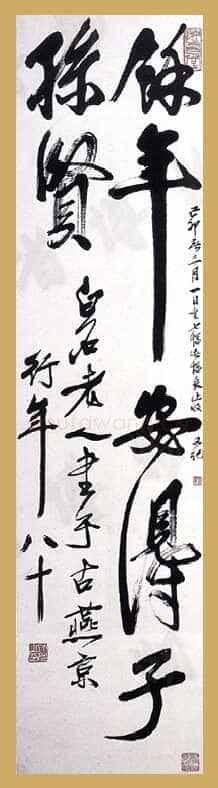 己卯春二月一日生七
又記
餘年安得子
孫賢
白石老人書于古燕京
行年八十